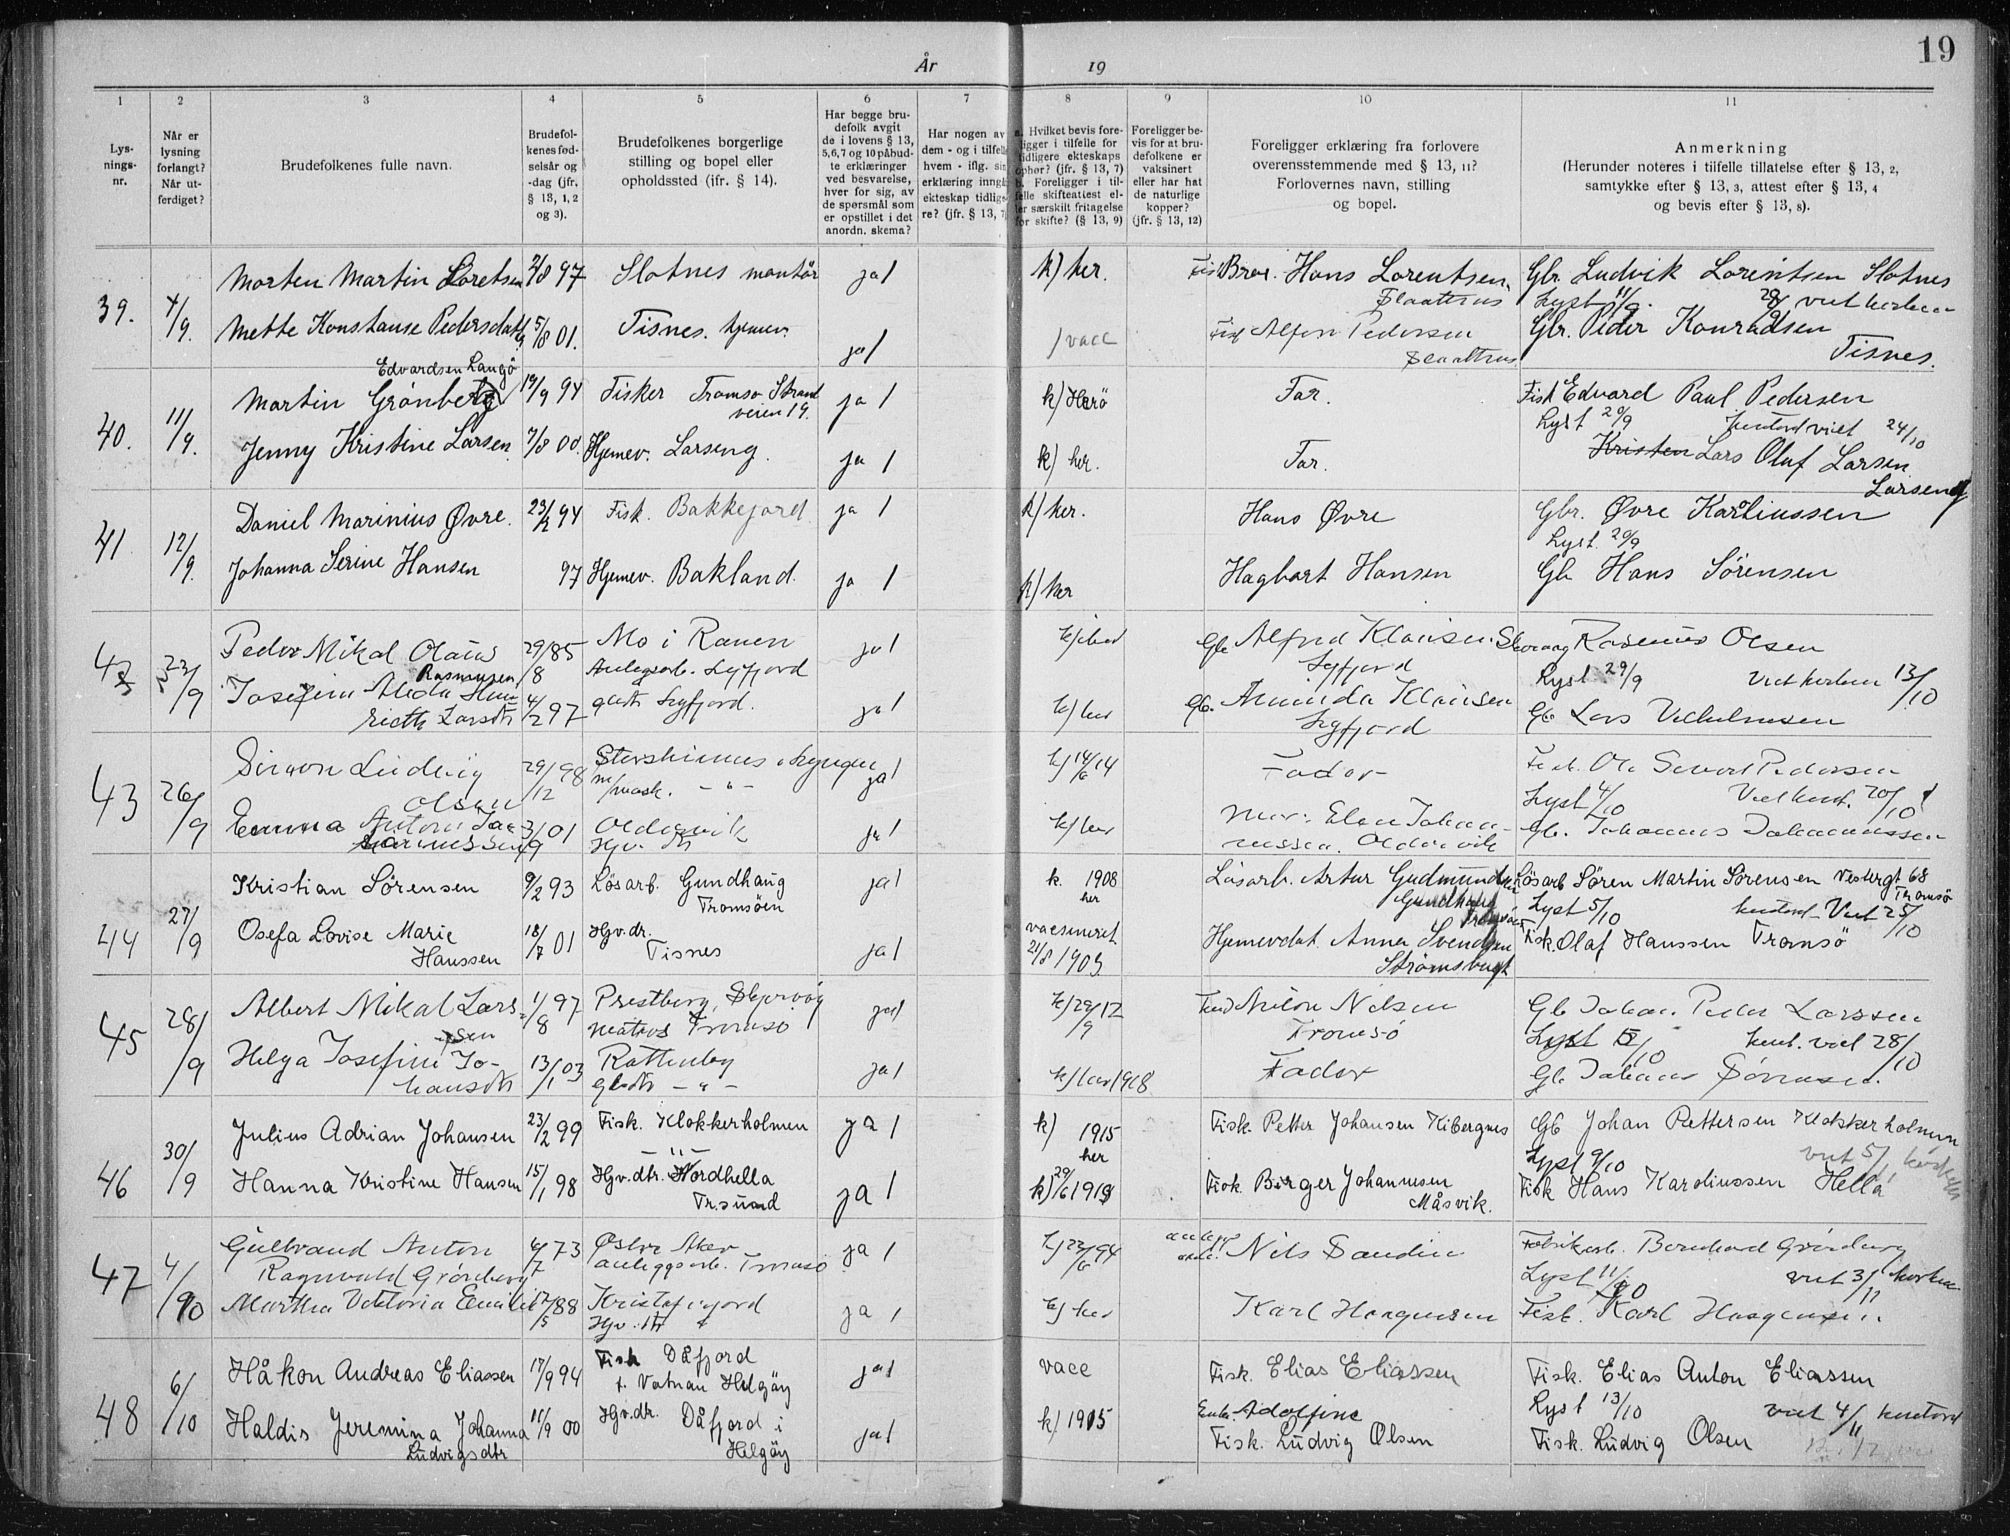 19
År 19
1 2 3 4 5 6 7 8 9 10 11
Lys-
nings-
nr.
Når er
lysning
forlangt?
Når ut-
ferdiget?
Brudefolkenes fulle navn.
Brudefol-
kenes fød-
selsår og
-dag (jfr.
§ 13, 1, 2
og 3).
Brudefolkenes borgerlige
stilling og bopel eller
opholdssted (ifr. § 14).
Har begge bru-
defolk avgit
de i lovens § 13,
5,6,7 og 10 påbud-
te erklæringer
ved besvarelse,
hver for sig, av
de spørsmål som
er opstillet i det
anordn. skema?
Har nogen av
dem - og i tilfelle
hvem - iflg. sin
erklæring inngå
ekteskap tidlige
re? (jfr. § 13, 7
a. Hvilket bevis fore-
ligger i tilfelle for
tidligere ekteskaps
ophør? (jfr. § 13, 7)
b. Foreligger i til-
felle skifteattest el-
ler særskilt fritagelse
for skifte? (§ 13, 9)
Foreligger be-
vis for at bru-
defolkene er
vaksinert
eller har hat
de naturlige
kopper?
(jfr. § 13, 12)
Foreligger erklæring fra forlovere
overensstemmende med § 13, 11?
Forlovernes navn, stilling
og bopel.
Anmerkning
(Herunder noteres i tilfelle tillatelse efter § 13, 2,
samtykke efter § 13, 3, attest efter § 13, 4
og bevis efter § 13, 8).
39. 4/9. Morten Martin Loretsen 2/8 97 Slotnes montör ja 1 k) her. Bror. Hans Lorentsen Gbr. Ludvik Lorentsen Slotnes
Slaattnes Lyst 11/9.
Mette Konstanse Pedersdatt 5/8 01. Tisnes. hjemev. ja 1 ) vacc Alfon Pedersen Gbr. Peder Konradsen
Slaattnes Tisnes.
Edvardsen Langö
40. 11/9. Martin Grönberg 19/9 94 Fisker Tromsø Strand ja 1 k) Herö Far. Fisk Edvard Paul Pedersen
veien 19. Lyst 20/9 viet 24/10
Jenny Kristine Larsen 7/8 00. Hjemev. Larseng. ja 1 k) her. Far. Kristen Lars Olaf Larsen
Larseng
41. 12/9. Daniel Marinius Øvre. 23/2 94 Fisk. Bakkejord ja 1 k) her. Hans Øvre Gbr. Øvre Karliussen
Lyst. 20/9
Johanna Serine Hansen 97 Hjemev. Bakland. ja 1 k) her Hagbart Hansen Gb Hans Sörensen
42 23/9 Peder Mikal Olaus 29/8 85 Mo i Ranen ja 1 k/ her Gb. Alfred Klausen Rasmus Olsen
Rasmusen Anlegsarb. Lyfjord Lyfjord Lyst 29/9 Viet kirken 13/10
Josefine Alida Hen 4/2 97 gdtr Lyfjord. ja 1 k/ her Gb. Aminda Klausen Gb Lars Vilhelmsen
riette Larsdtr Lyfjord
43 26/9 Simon Ludvig 29/12 98 Storstennes i Lyngen ja 1 k/ 14/6 14 Fader Fisk. Ole Sevart Pedersen
Olsen m/mask. - " - Lyst 4/10 Viet kont. 20/10
Emma Antoni Jo 3/9 01 Oldervik ja 1 k/ her Elen Johan- Gb. Johannes Johannessen
hannessen Hjv. dtr nessen. Oldervik
44 27/9 Kristian Sörensen 9/2 93 Lösarb. Gundhaug ja 1 k. 1908 Lösarb. Artur Gudmundsen Lösarb Sören Martin Sörensen Vestergt 68
Tromsöen her Gundhaug Tromsö
Lyst 5/10 kontor Viet 25/10
Osefa Lovise Marie 18/7 01 Hjv. dr. ja 1 vacsineret Hjemevdat. Anna Svendsen Fisk. Olaf Hanssen Tromsö
Hanssen Tisnes 21/8 1903 Strömsbugt
45 28/9 Albert Mikal Lars- 1/8 97 Prestberg, Skjervöy ja 1 k/ 29/9 12 Anton Nilsen Gb. Johan Peder Larssen
sen matros Tromsö Tromsö Lyst 5/10 kont. viet 28/10
Helga Josefine Jo- 13/1 03 Kattenby ja 1 k/ her 1918 Fader Gb. Johans Sörensen.
hansdtr gbdtr - " -
46 30/9 Julius Adrian Johansen 23/2 99 Fisk. Klokkerholmen ja 1 k) 1915 Fisk. Petter Johansen Kibergnes Gb Johan Pettersen Klokkerholmen
- " - her Lyst 9/10 viet 5/
Hanna Kristine Hansen 15/1 98 Hjv.dtr. Nordhella ja 1 k) 29/6 1913 Fisk. Birger Johannesen Fisk Hans Karoliussen Hella
Tr.sund Måsvik.
47 4/10 Gulbrand Anton 6/7 73 Østre Aker ja 1 k/ 23/6 94 Nils Sandin Fabrikarb. Bernhard Grönberg
Ragnvald Grönberg anleggsarb. Tromsö Lyst 11/10 viet 3/11 kirken
Martha Viktoria Emilie 17/5 88 Kristofjord ja 1 k/ her Karl Haagensen Fisk. Karl Haagensen.
Hjv. dtr "
48 6/10 Håkon Andreas Eliassen 17/9 94 Fisk Dåfjord ja 1 vacc Fisk. Elias Eliassen Fisk. Elias Anton Eliassen
f. Vatnan Helgöy Lyst 13/10 viet 4/11 kontor
Haldis Jeremina Johanna 11/9 00 Hjv.dr. Dåfjord i ja 1 k) 1915 Enke. Adolfine
Ludvigsdtr Helgöy Fisk. Ludvig Olsen Fisk. Ludvig Olsen